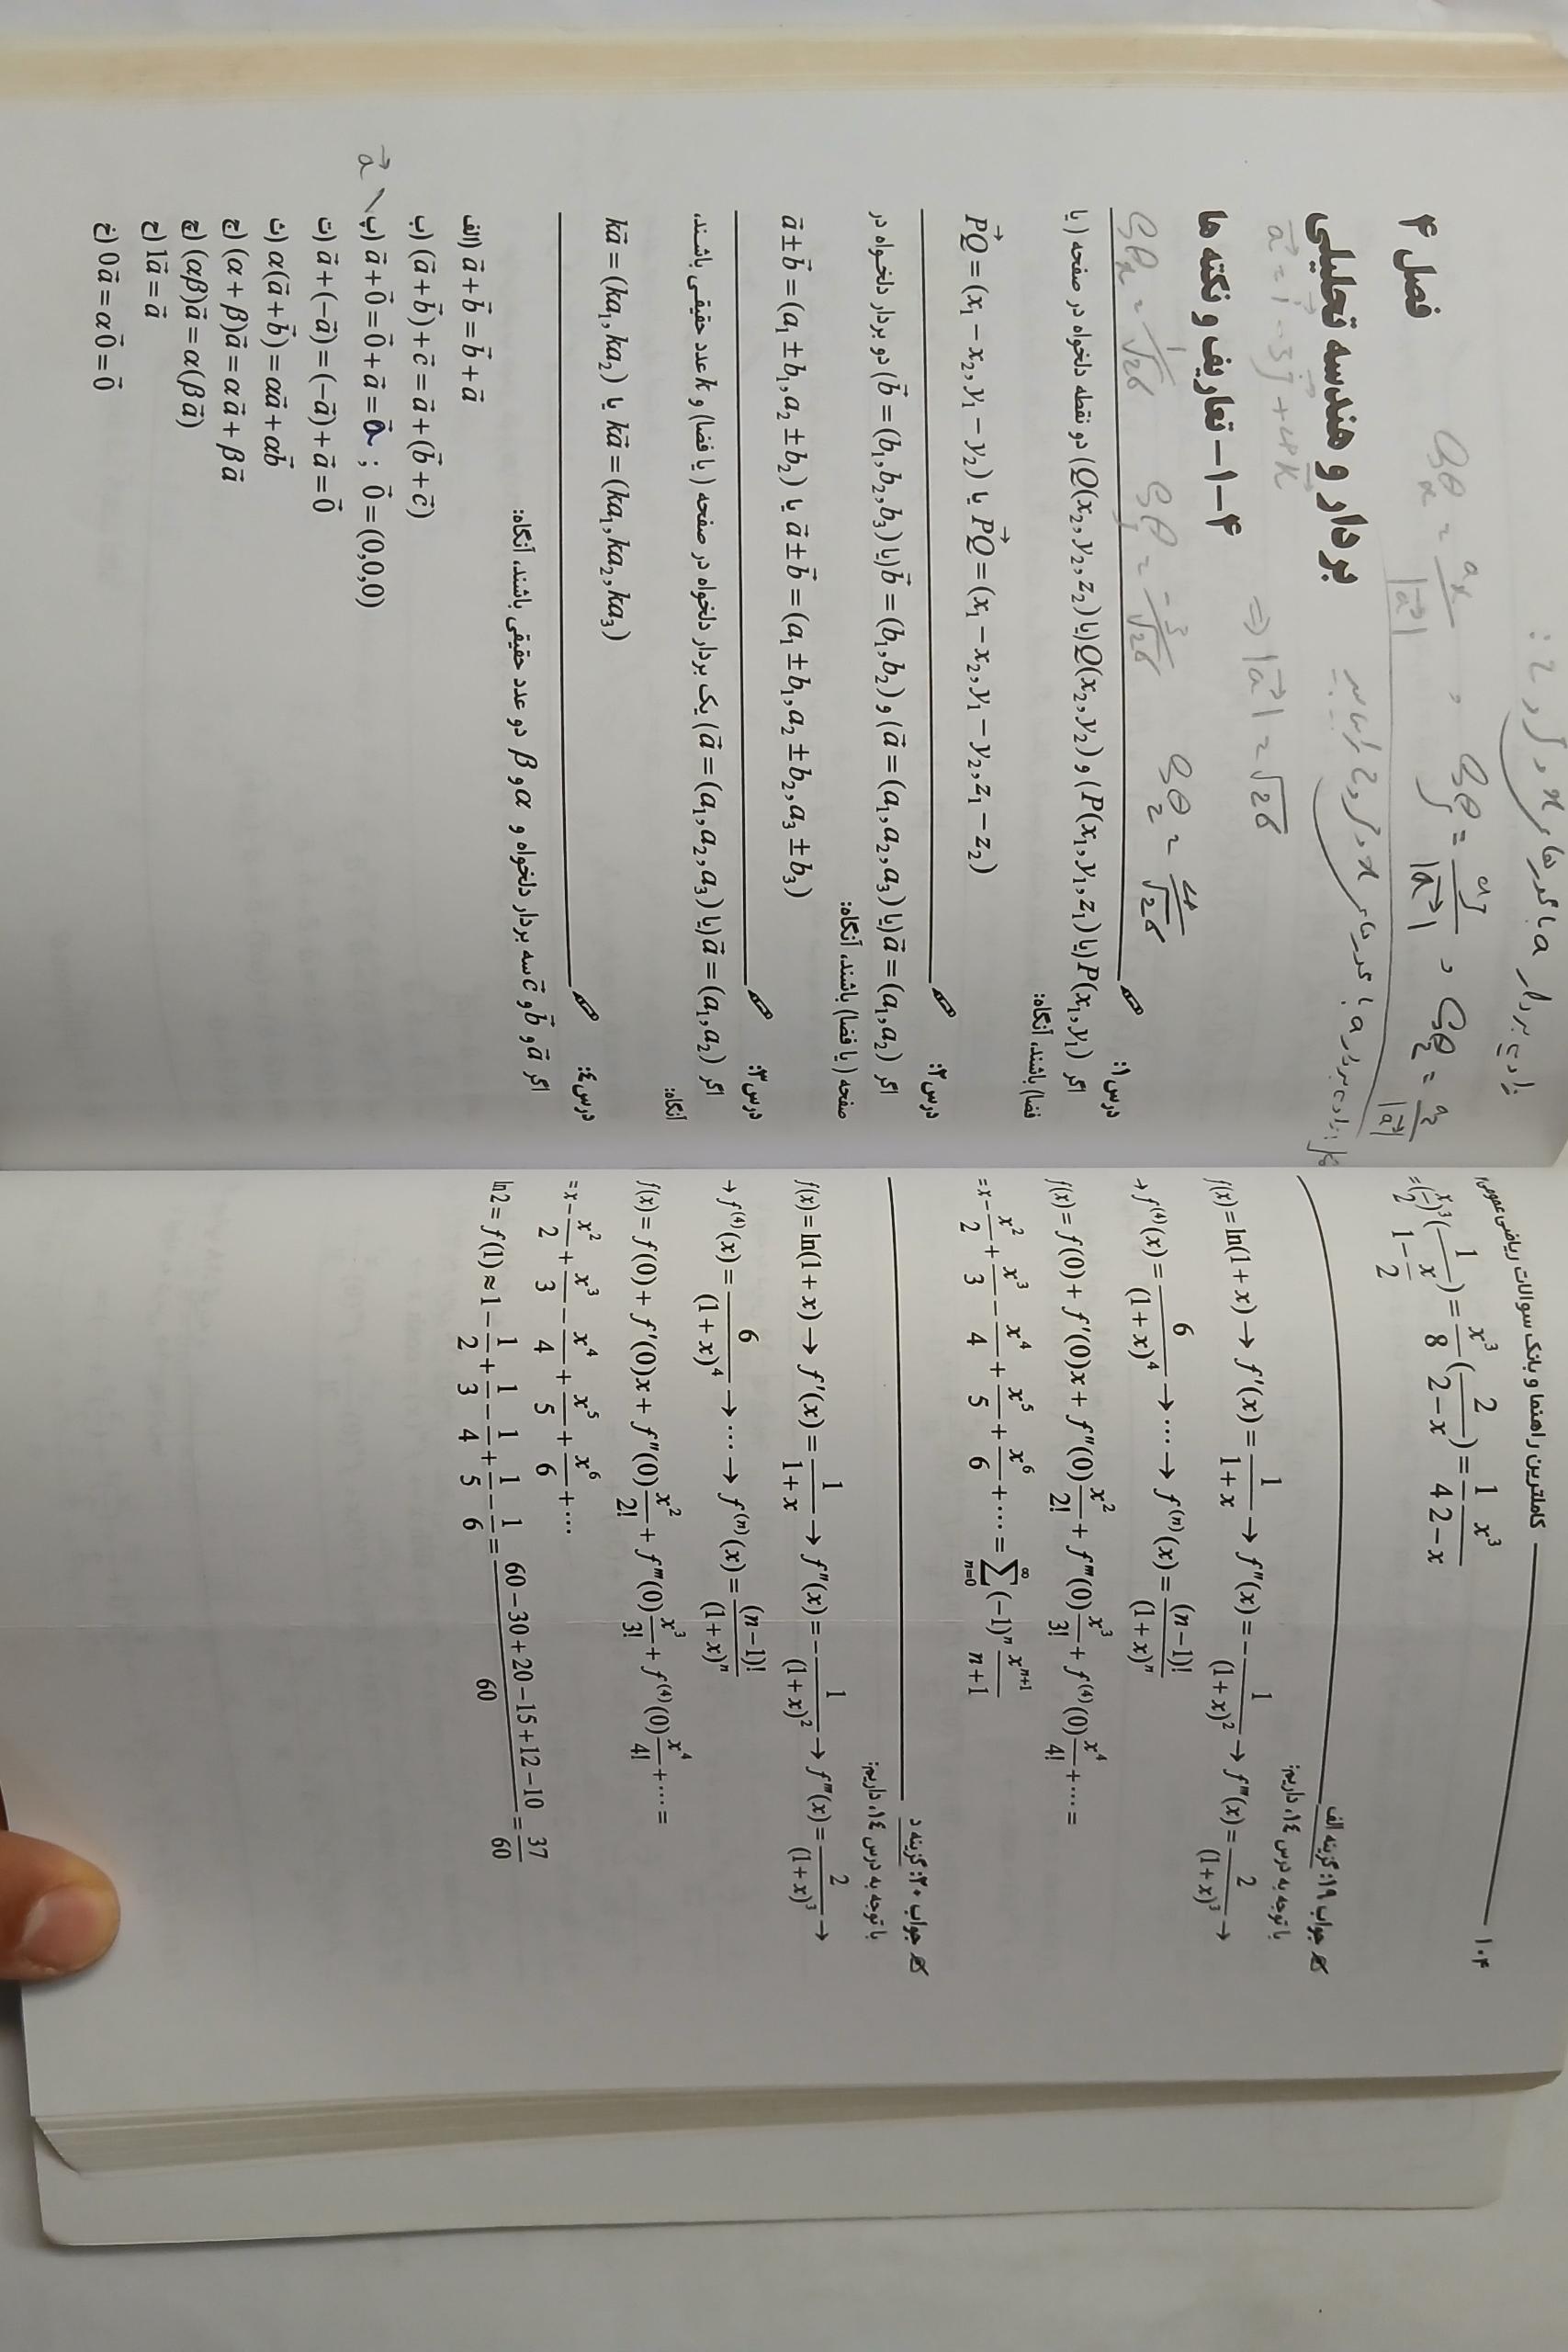 کاملترین راهنما و بانک سوالات ریاضی عمومی۱ ۱۰۴
=(x/2)^3(1/(1-x/2))=x^3/8(2/(2-x))=1/4 x^3/(2-x)
جواب ۱۹: گزینه الف
با توجه به درس ۱٤، داریم:
f(x)=ln(1+x)→f'(x)=1/(1+x)→f''(x)=-1/(1+x)^2→f'''(x)=2/(1+x)^3→
→f^(4)(x)=6/(1+x)^4→⋯→f^(n)(x)=(n-1)!/(1+x)^n
f(x)=f(0)+f'(0)x+f''(0)x^2/2!+f'''(0)x^3/3!+f^(4)(0)x^4/4!+⋯=
=x-x^2/2+x^3/3-x^4/4+x^5/5+x^6/6+⋯=∑_{n=0}^{∞}(-1)^n x^{n+1}/(n+1)
جواب ۲۰: گزینه د
با توجه به درس ۱٤، داریم:
f(x)=ln(1+x)→f'(x)=1/(1+x)→f''(x)=-1/(1+x)^2→f'''(x)=2/(1+x)^3→
→f^(4)(x)=6/(1+x)^4→⋯→f^(n)(x)=(n-1)!/(1+x)^n
f(x)=f(0)+f'(0)x+f''(0)x^2/2!+f'''(0)x^3/3!+f^(4)(0)x^4/4!+⋯=
=x-x^2/2+x^3/3-x^4/4+x^5/5+x^6/6+⋯
ln2=f(1)≈1-1/2+1/3-1/4+1/5-1/6=(60-30+20-15+12-10)/60=37/60
بردار a با محورهای x و y و z :
cosθ_x = a_x/|a⃗| , cosθ_y = a_y/|a⃗| , cosθ_z = a_z/|a⃗|
فصل ۴
بردار a با محورهای x و y و z
a⃗ = i⃗ - 3j⃗ + 4k⃗ ⇒ |a⃗| = √26
بردار و هندسه تحلیلی
۴-۱- تعاریف و نکته ها
cosθ_x = 1/√26 cosθ_y = -3/√26 cosθ_z = 4/√26
درس ۱:
اگر P(x₁,y₁) (یا P(x₁,y₁,z₁)) و Q(x₂,y₂) (یا Q(x₂,y₂,z₂)) دو نقطه دلخواه در صفحه (یا
فضا) باشند، آنگاه:
PQ⃗=(x₁-x₂,y₁-y₂) یا PQ⃗=(x₁-x₂,y₁-y₂,z₁-z₂)
درس ۲:
اگر a⃗=(a₁,a₂) (یا a⃗=(a₁,a₂,a₃)) و b⃗=(b₁,b₂) (یا b⃗=(b₁,b₂,b₃)) دو بردار دلخواه در
صفحه (یا فضا) باشند، آنگاه:
a⃗±b⃗=(a₁±b₁,a₂±b₂) یا a⃗±b⃗=(a₁±b₁,a₂±b₂,a₃±b₃)
درس ۳:
اگر a⃗=(a₁,a₂) (یا a⃗=(a₁,a₂,a₃)) یک بردار دلخواه در صفحه (یا فضا) و k عدد حقیقی باشند،
آنگاه:
ka⃗=(ka₁,ka₂) یا ka⃗=(ka₁,ka₂,ka₃)
درس ٤:
اگر a⃗ و b⃗ و c⃗ سه بردار دلخواه و α و β دو عدد حقیقی باشند، آنگاه:
الف) a⃗+b⃗=b⃗+a⃗
ب) (a⃗+b⃗)+c⃗=a⃗+(b⃗+c⃗)
a⃗ پ) a⃗+0⃗=0⃗+a⃗=a⃗ ; 0⃗=(0,0,0)
ت) a⃗+(-a⃗)=(-a⃗)+a⃗=0⃗
ث) α(a⃗+b⃗)=αa⃗+αb⃗
ج) (α+β)a⃗=αa⃗+βa⃗
چ) (αβ)a⃗=α(βa⃗)
ح) 1a⃗=a⃗
خ) 0a⃗=α0⃗=0⃗